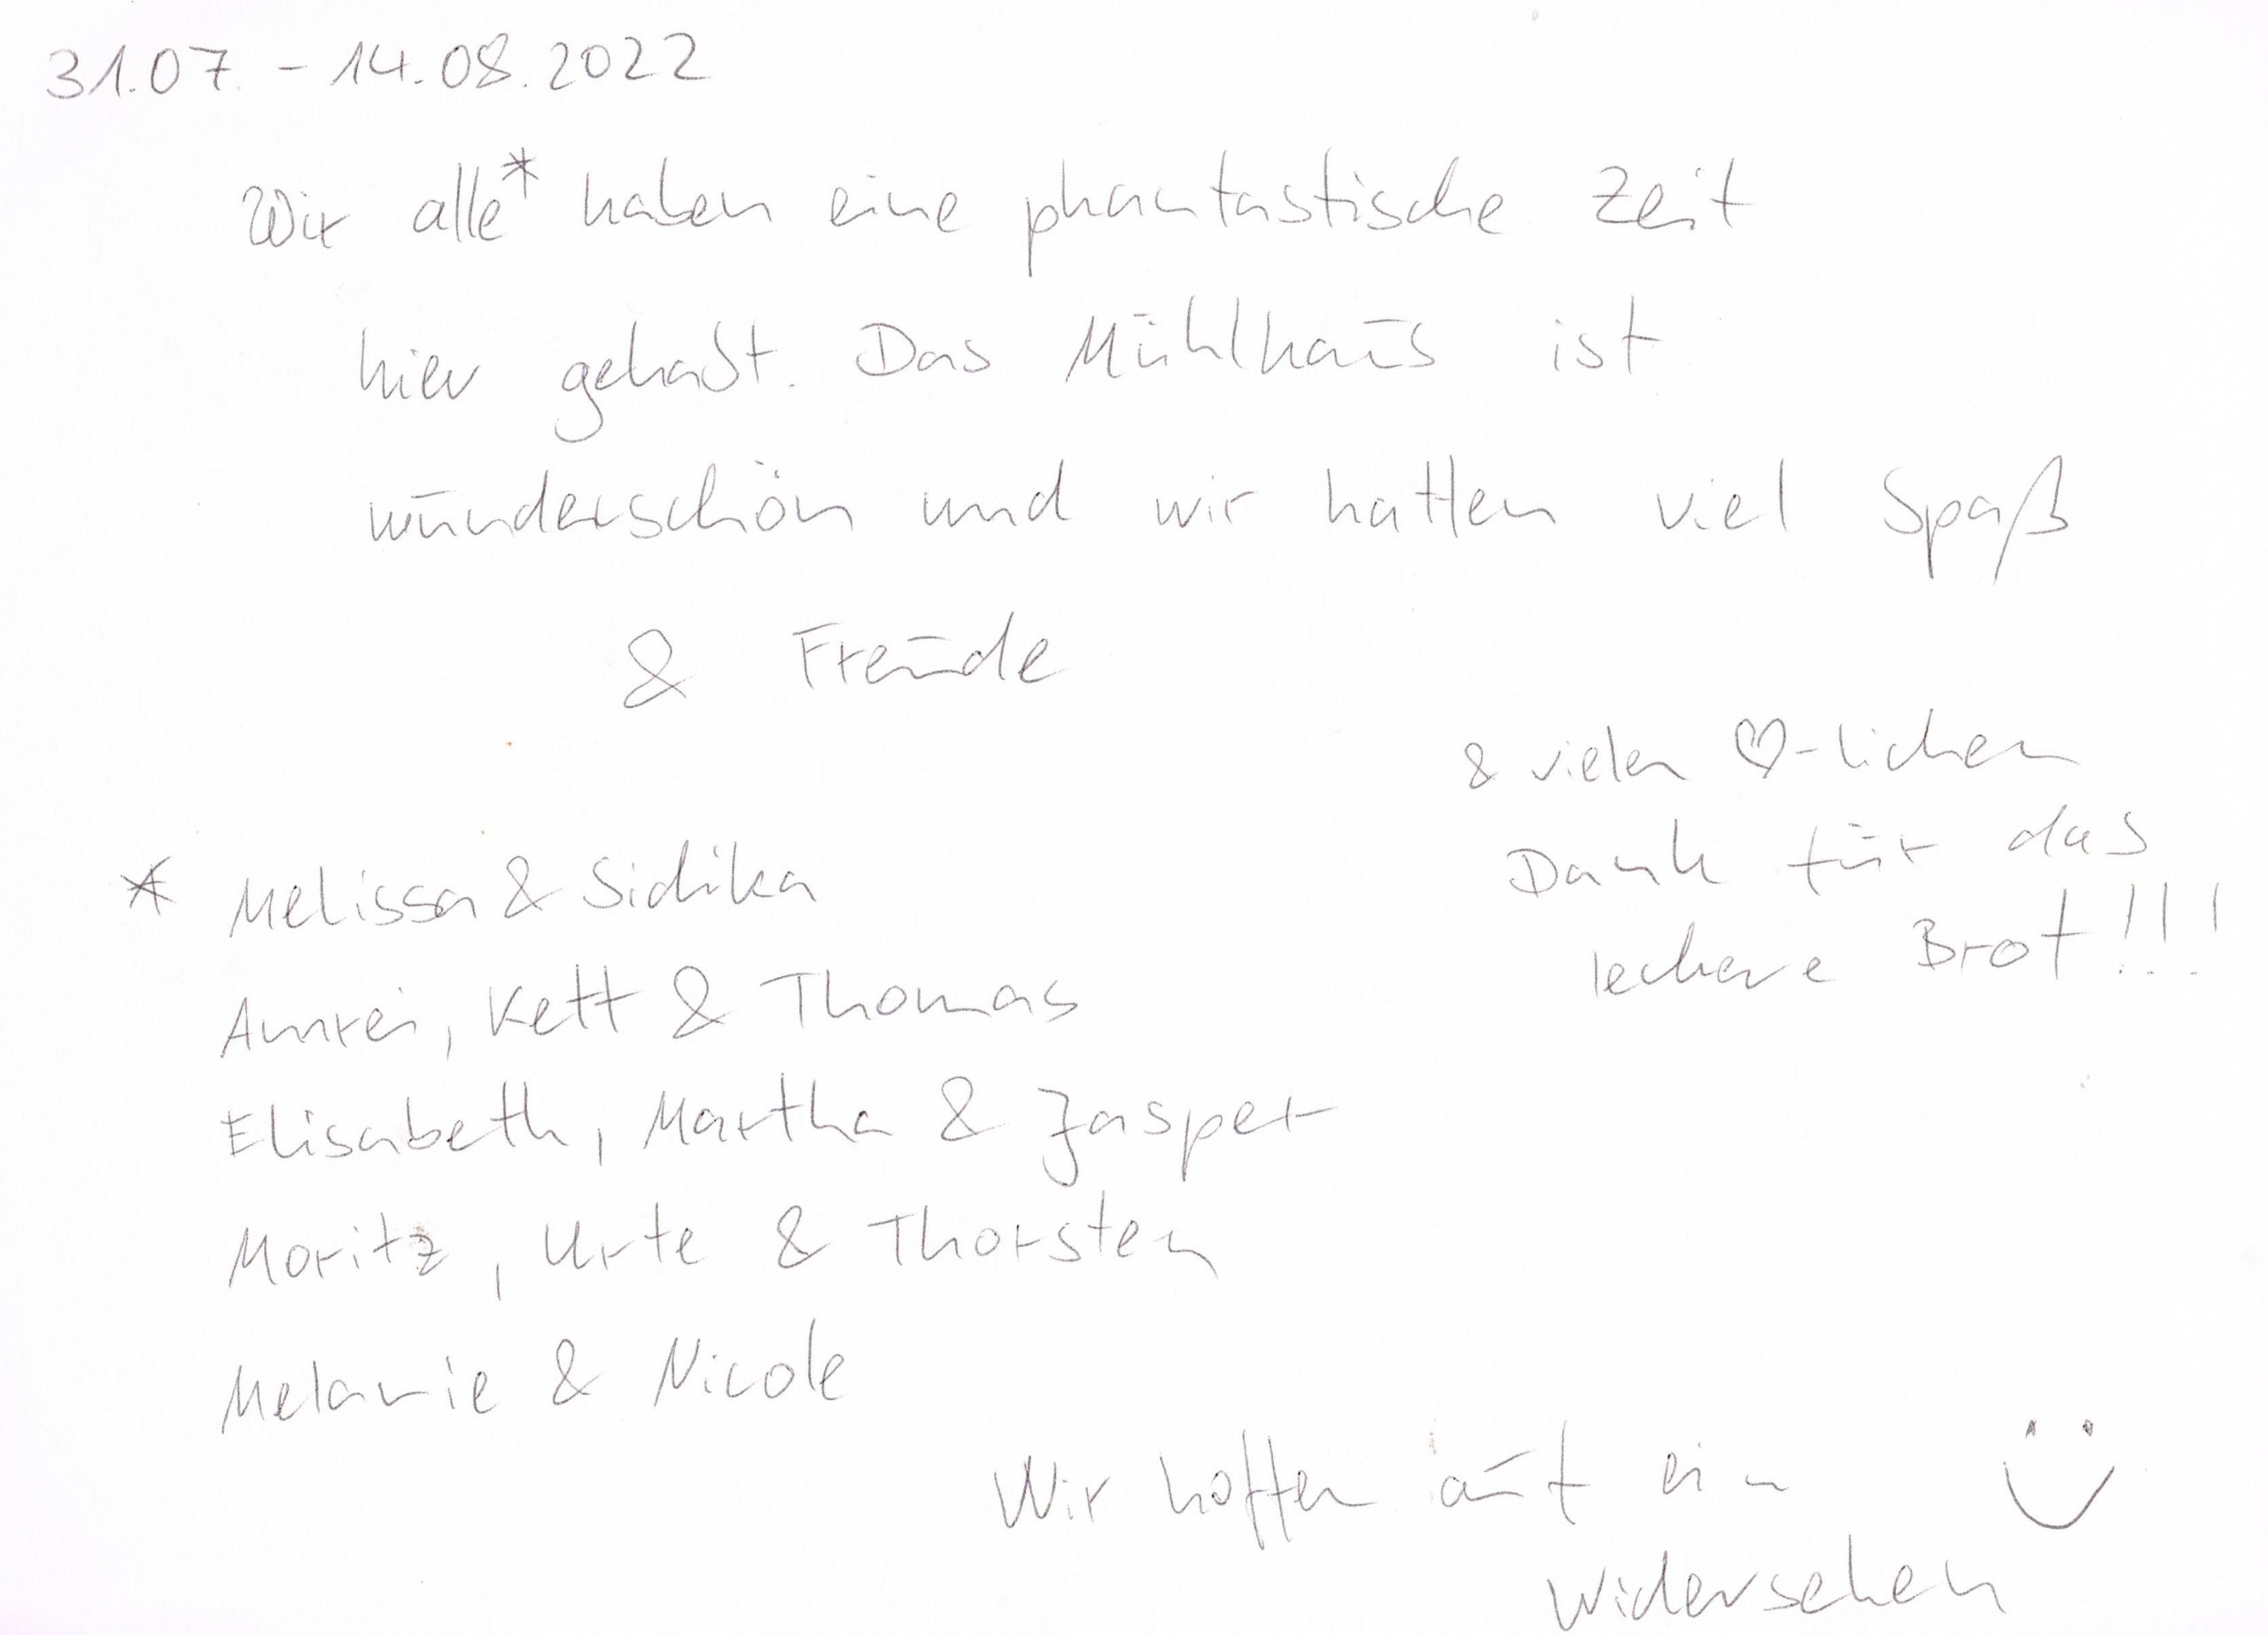 31.07. - 14.08.2022
Wir alle* haben eine phantastische Zeit
hier gehabt. Das Mühlhaus ist
wunderschön und wir hatten viel Spaß
& Freude
& vielen ♡-lichen
Dank für das
leckere Brot!!!
* Melissa & Sidika
Annrei, Kett & Thomas
Elisabeth, Martha & Jasper
Moritz, Urte & Thorsten
Melanie & Nicole
Wir hoffen auf ein
Widersehen